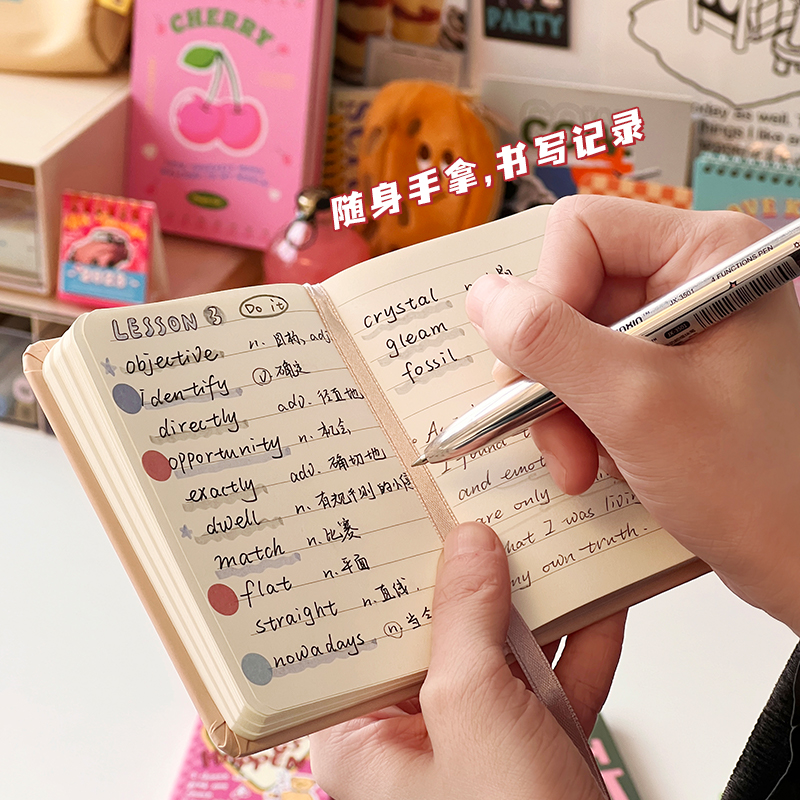 PARTY
CHERRY
随身手拿,书写记录
2023
4 FUNCTIONS PEN
JX-3501
LESSON 3 Do it
objective n. 目标, adj
identify v 确定
directly adv. 径直地
opportunity n. 机会
exactly adv. 确切地
dwell n.
match n. 比赛
flat n. 平面
straight n. 直线.
nowadays n. 当今
crystal
gleam
fossil
I found
and emot
are only
what I was livin
my own truth.
oday as well.
things I like